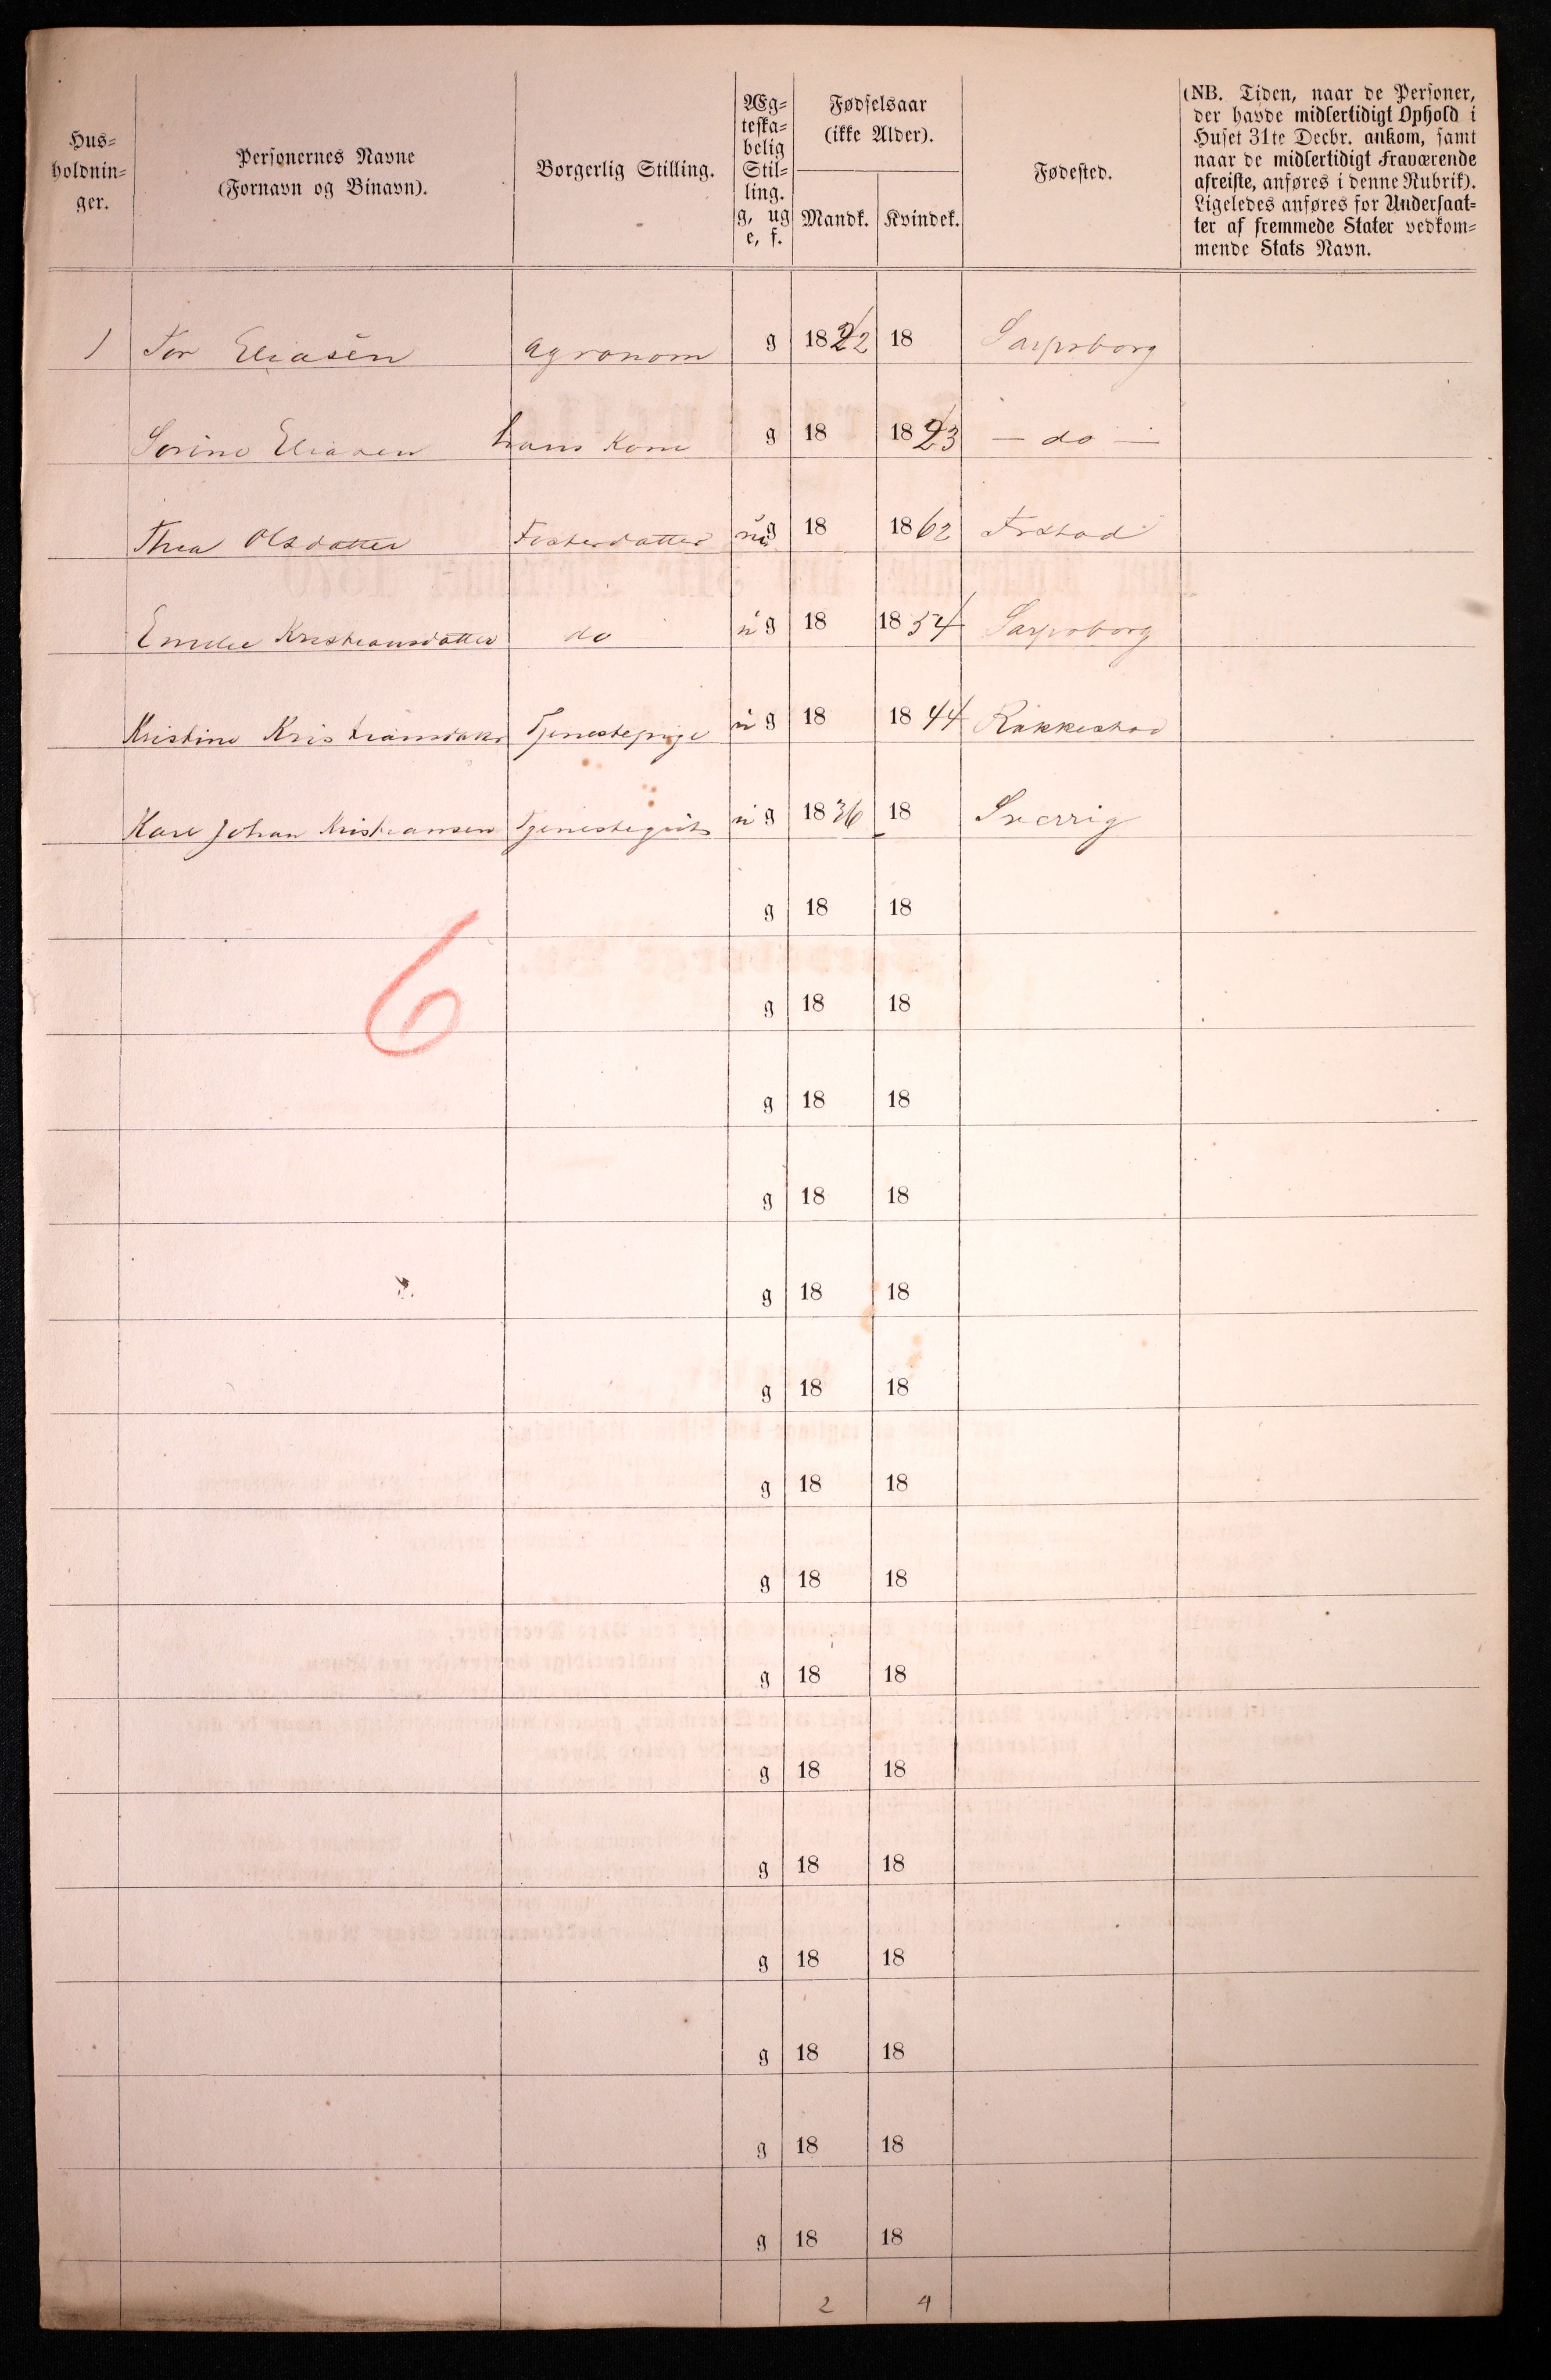 Hus-
holdnin-
ger.
Personernes Navne
(Fornavn og Binavn).
Borgerlig Stilling.
Æg-
teska-
belig
Stil-
ling.
g, ug
e, f.
Fødselsaar
(ikke Alder).
Mandk. Kvindek.
Fødested.
(NB. Tiden, naar de Personer,
der havde midlertidigt Ophold i
Huset 31te Decbr. ankom, samt
naar de midlertidigt Fraværende
afreiste, anføres i denne Rubrik).
Ligeledes anføres for Undersaat-
ter af fremmede Stater vedkom-
mende Stats Navn.
1 Tor Eliasen Agronom g 1822 18 Sarpsborg
Sorine Eliasen hans Kone g 18 1823 — do —
Thea Olsdatter Fosterdatter ug 18 1862
Emelie Kristiansdatter do ug 18 1854 Sarpsborg
Kristine Kristiansdatter Tjenestepige ug 18 1844 Rakkestad
Karl Johan Kristiansen Tjenestegut ug 1836 18 Sverrig
g 18 18
6
g 18 18
g 18 18
g 18 18
g 18 18
g 18 18
g 18 18
g 18 18
g 18 18
g 18 18
g 18 18
g 18 18
g 18 18
g 18 18
g 18 18
2 4